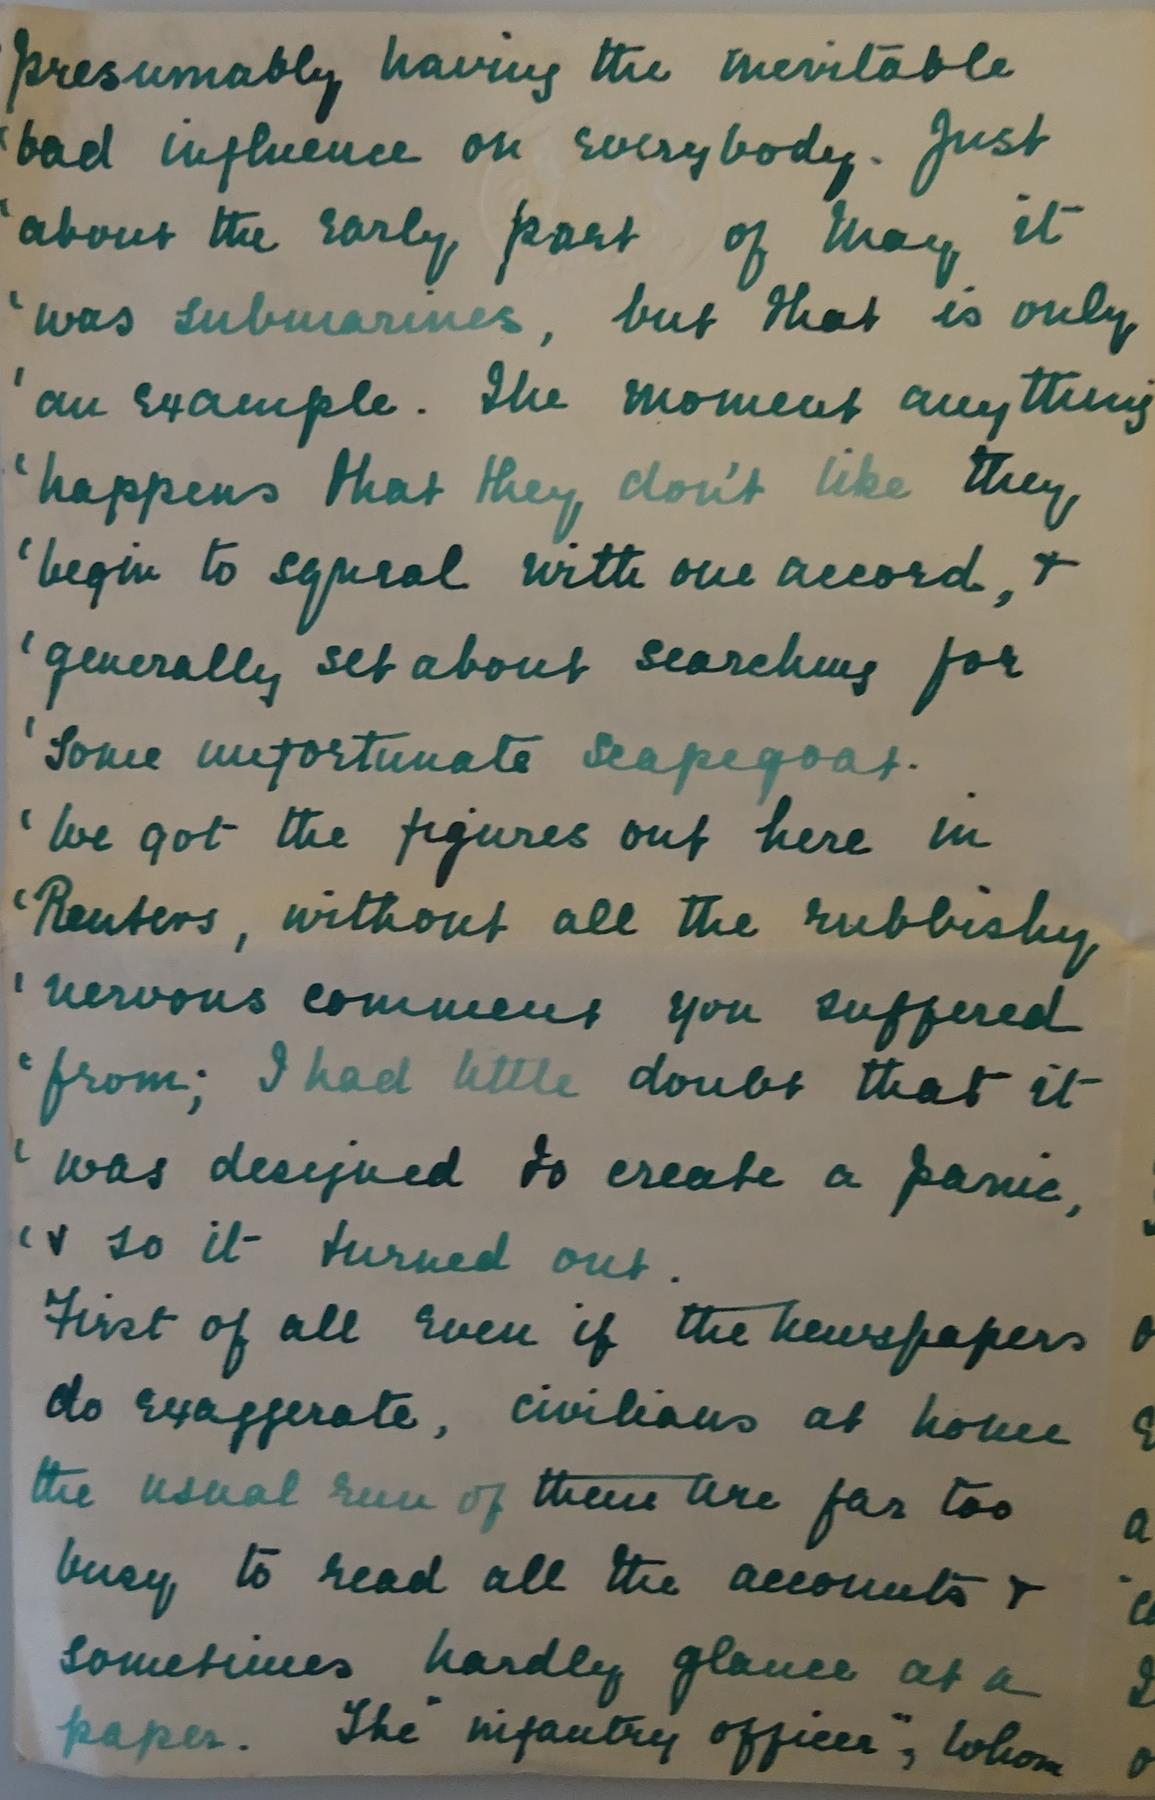 presumably having the inevitable
'bad influence on everybody. Just
'about the early part of May it
'was submarines, but that is only
'an example. The moment anything
'happens that they don't like they
'begin to squeal with one accord, &
'generally set about searching for
'some unfortunate scapegoat.
'We got the figures out here in
'Reuters, without all the rubbishy
'nervous comment you suffered
'from; I had little doubt that it
'was designed to create a panic,
'& so it turned out.
First of all even if the newspapers
do exaggerate, civilians at home
the usual run of them are far too
busy to read all the accounts &
sometimes hardly glance at a
paper. The "infantry officer", whom